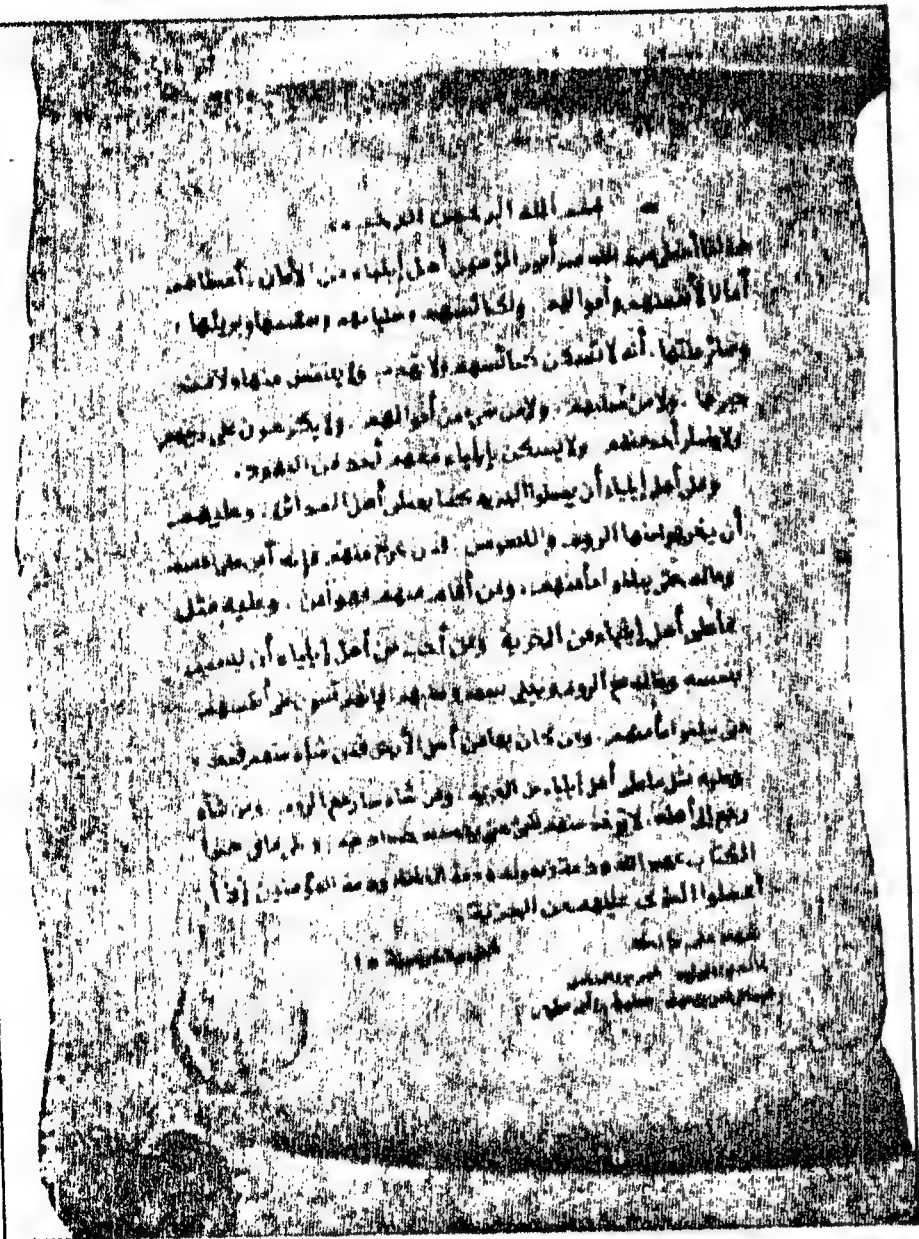 بسم الله الرحمن الرحيم
هذا ما أعطى عبد الله عمر أمير المؤمنين أهل إيلياء من الأمان: أعطاهم
أمانا لأنفسهم وأموالهم ولكنائسهم وصلبانهم وسقيمها وبريئها
وسائر ملتها. أنه لا تسكن كنائسهم ولا تهدم ولا ينتقص منها ولا من
حيزها. ولا من صليبهم. ولا من شيء من أموالهم. ولا يكرهون على دينهم
ولا يضار أحد منهم ولا يسكن بإيلياء معهم أحد من اليهود.
وعلى أهل إيلياء أن يعطوا الجزية كما يعطي أهل المدائن. وعليهم
أن يخرجوا منها الروم واللصوص. فمن خرج منهم فإنه آمن على نفسه
وماله حتى يبلغوا مأمنهم. ومن أقام منهم فهو آمن. وعليه مثل
ما على أهل إيلياء من الجزية ومن أحب من أهل إيلياء أن يسير
بنفسه وماله مع الروم ويخلي بيعهم وصلبهم فإنهم آمنون على أنفسهم
حتى يبلغوا مأمنهم. ومن كان بها من أهل الأرض فمن شاء منهم قعد
وعليه مثل ما على أهل إيلياء من الجزية. ومن شاء سار مع الروم. ومن شاء
رجع إلى أهله. لا يؤخذ منهم شيء حتى يحصد حصادهم. وعلى ما في هذا
الكتاب عهد الله وذمة رسوله وذمة الخلفاء وذمة المؤمنين إذا
أعطوا الذي عليهم من الجزية.
شهد على ذلك
كتب سنة ١٥
خالد بن الوليد عمرو بن العاص
عبد الرحمن بن عوف معاوية بن أبي سفيان